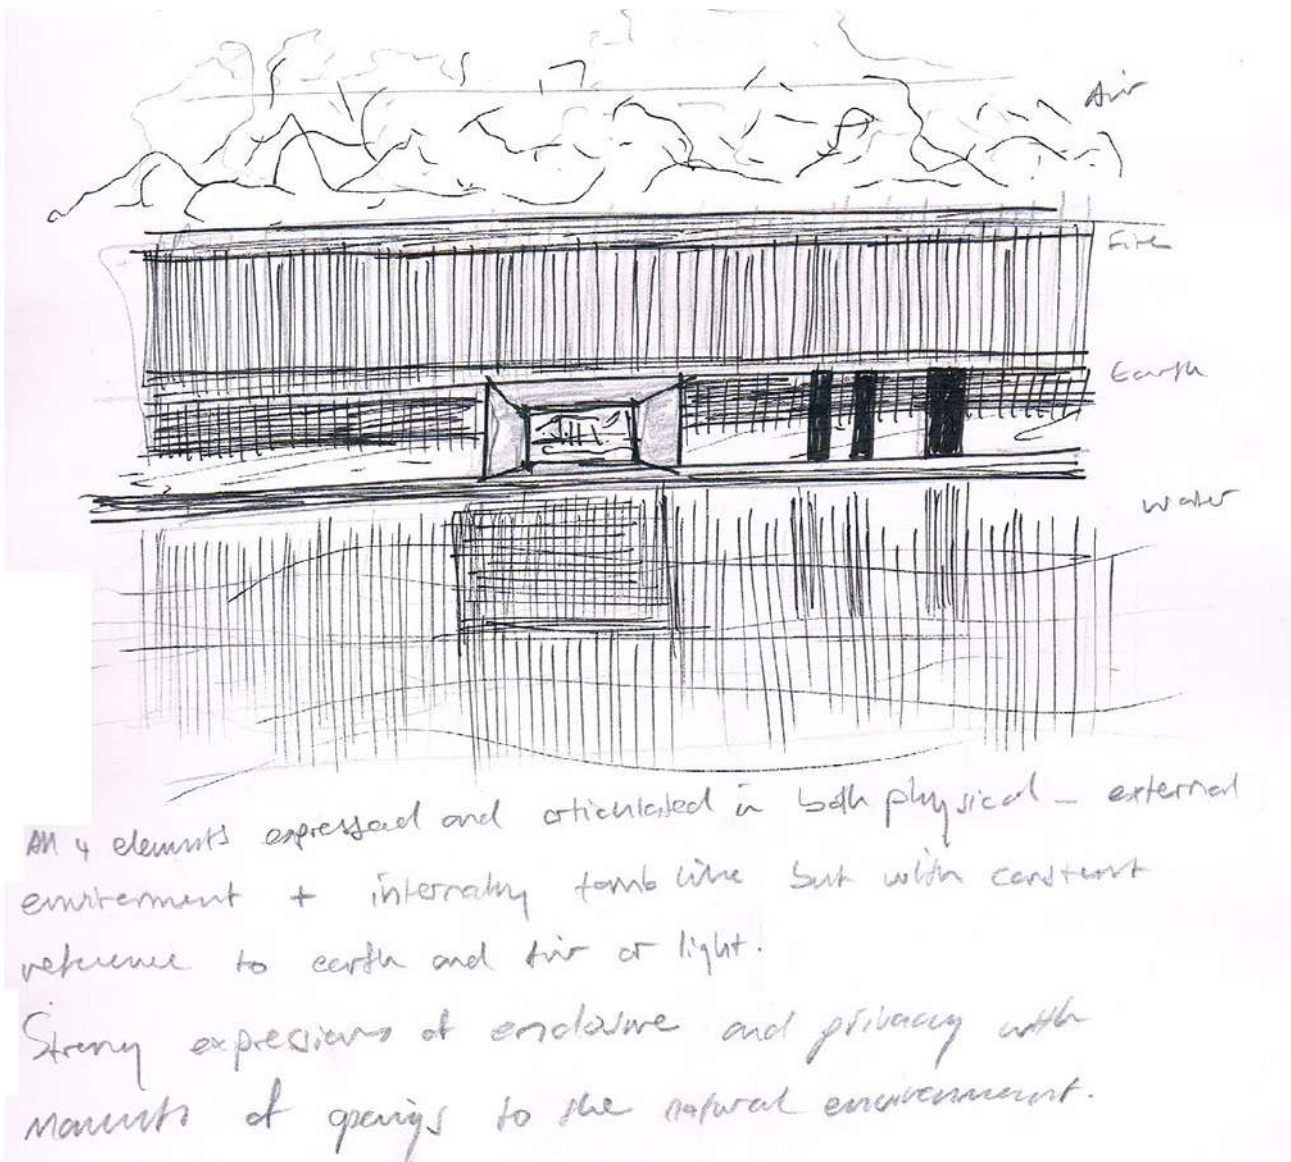 Air
Fire
Earth
Water
All 4 elements expressed and articulated in both physical - external
envirement + internaly tomb like but with constant
reference to earth and air or light.
Strong expressions of enclosure and privacy with
moments of openings to the natural environment.